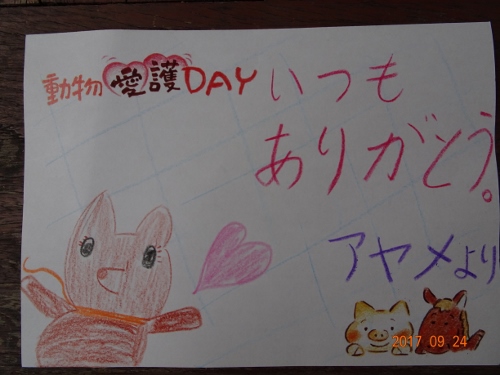 動物愛護DAY いつも
ありがとう。
アヤメより
2017 09 24